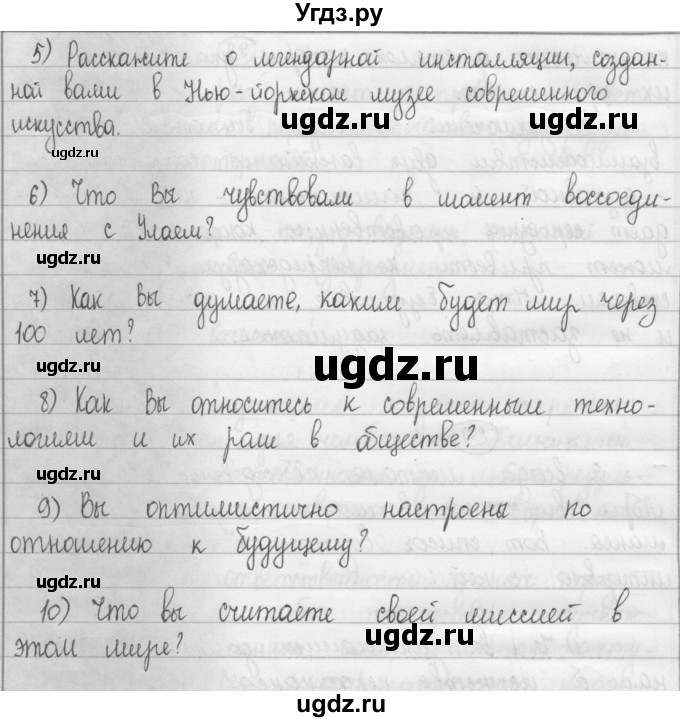 Угдз.ру
5) Расскажите о легендарной инсталляции, создан-
ной вами в Нью-йоркском музее современного
ugdz.ru ugdz.ru
искусства.
ugdz.ru
6) Что Вы чувствовали в момент воссоеди-
ugdz.ru
нения с Улаем?
ugdz.ru
7) Как Вы думаете, каким будет мир через
100 лет?
ugdz.ru
ugdz.ru
8) Как Вы относитесь к современным техно-
логиям и их роли в обществе?
ugdz.ru
9) Вы оптимистично настроены по
отношению к будущему?
ugdz.ru
10) Что вы считаете своей миссией в
ugdz.ru
этом мире?
ugdz.ru
ugdz.ru